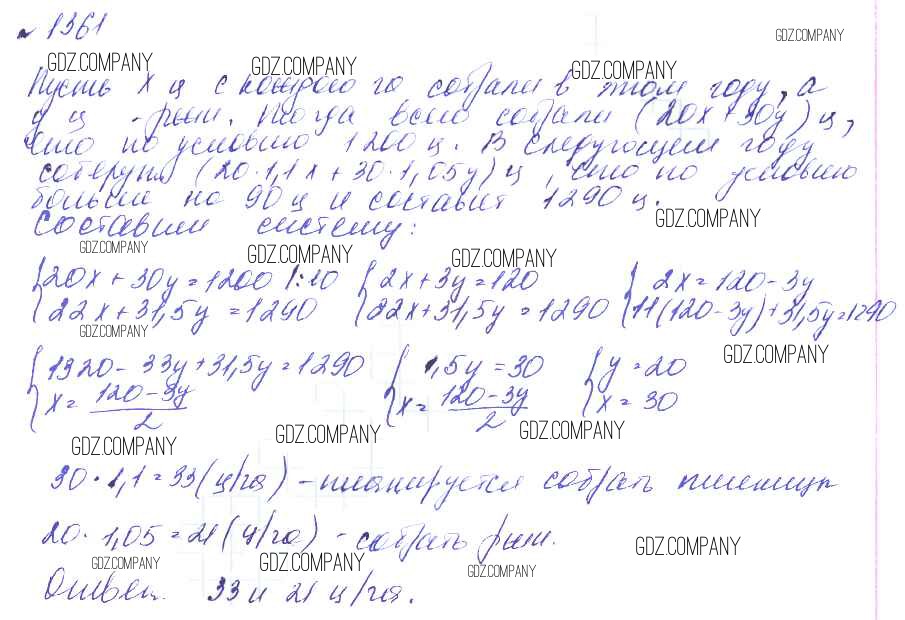 № 1361
GDZ.COMPANY
GDZ.COMPANY GDZ.COMPANY GDZ.COMPANY
Пусть x ц с каждого га собрали в этом году, а
y ц - ржи. Тогда всего собрали (20x + 30y) ц,
что по условию 1200 ц. В следующем году
соберут (20·1,1x + 30·1,05y) ц, что по условию
больше на 90 ц и составит 1290 ц.
GDZ.COMPANY
Составим систему:
GDZ.COMPANY GDZ.COMPANY GDZ.COMPANY
{20x + 30y = 1200 |:10 {2x + 3y = 120 {2x = 120 - 3y
22x + 31,5y = 1290 22x + 31,5y = 1290 11(120 - 3y) + 31,5y = 1290
GDZ.COMPANY GDZ.COMPANY
{1320 - 33y + 31,5y = 1290 {1,5y = 30 {y = 20
x = (120 - 3y)/2 x = (120 - 3y)/2 x = 30
GDZ.COMPANY GDZ.COMPANY GDZ.COMPANY
30 · 1,1 = 33 (ц/га) - планируется собрать пшеницы
20 · 1,05 = 21 (ц/га) - собрать ржи.
GDZ.COMPANY GDZ.COMPANY GDZ.COMPANY GDZ.COMPANY
Ответ. 33 и 21 ц/га.